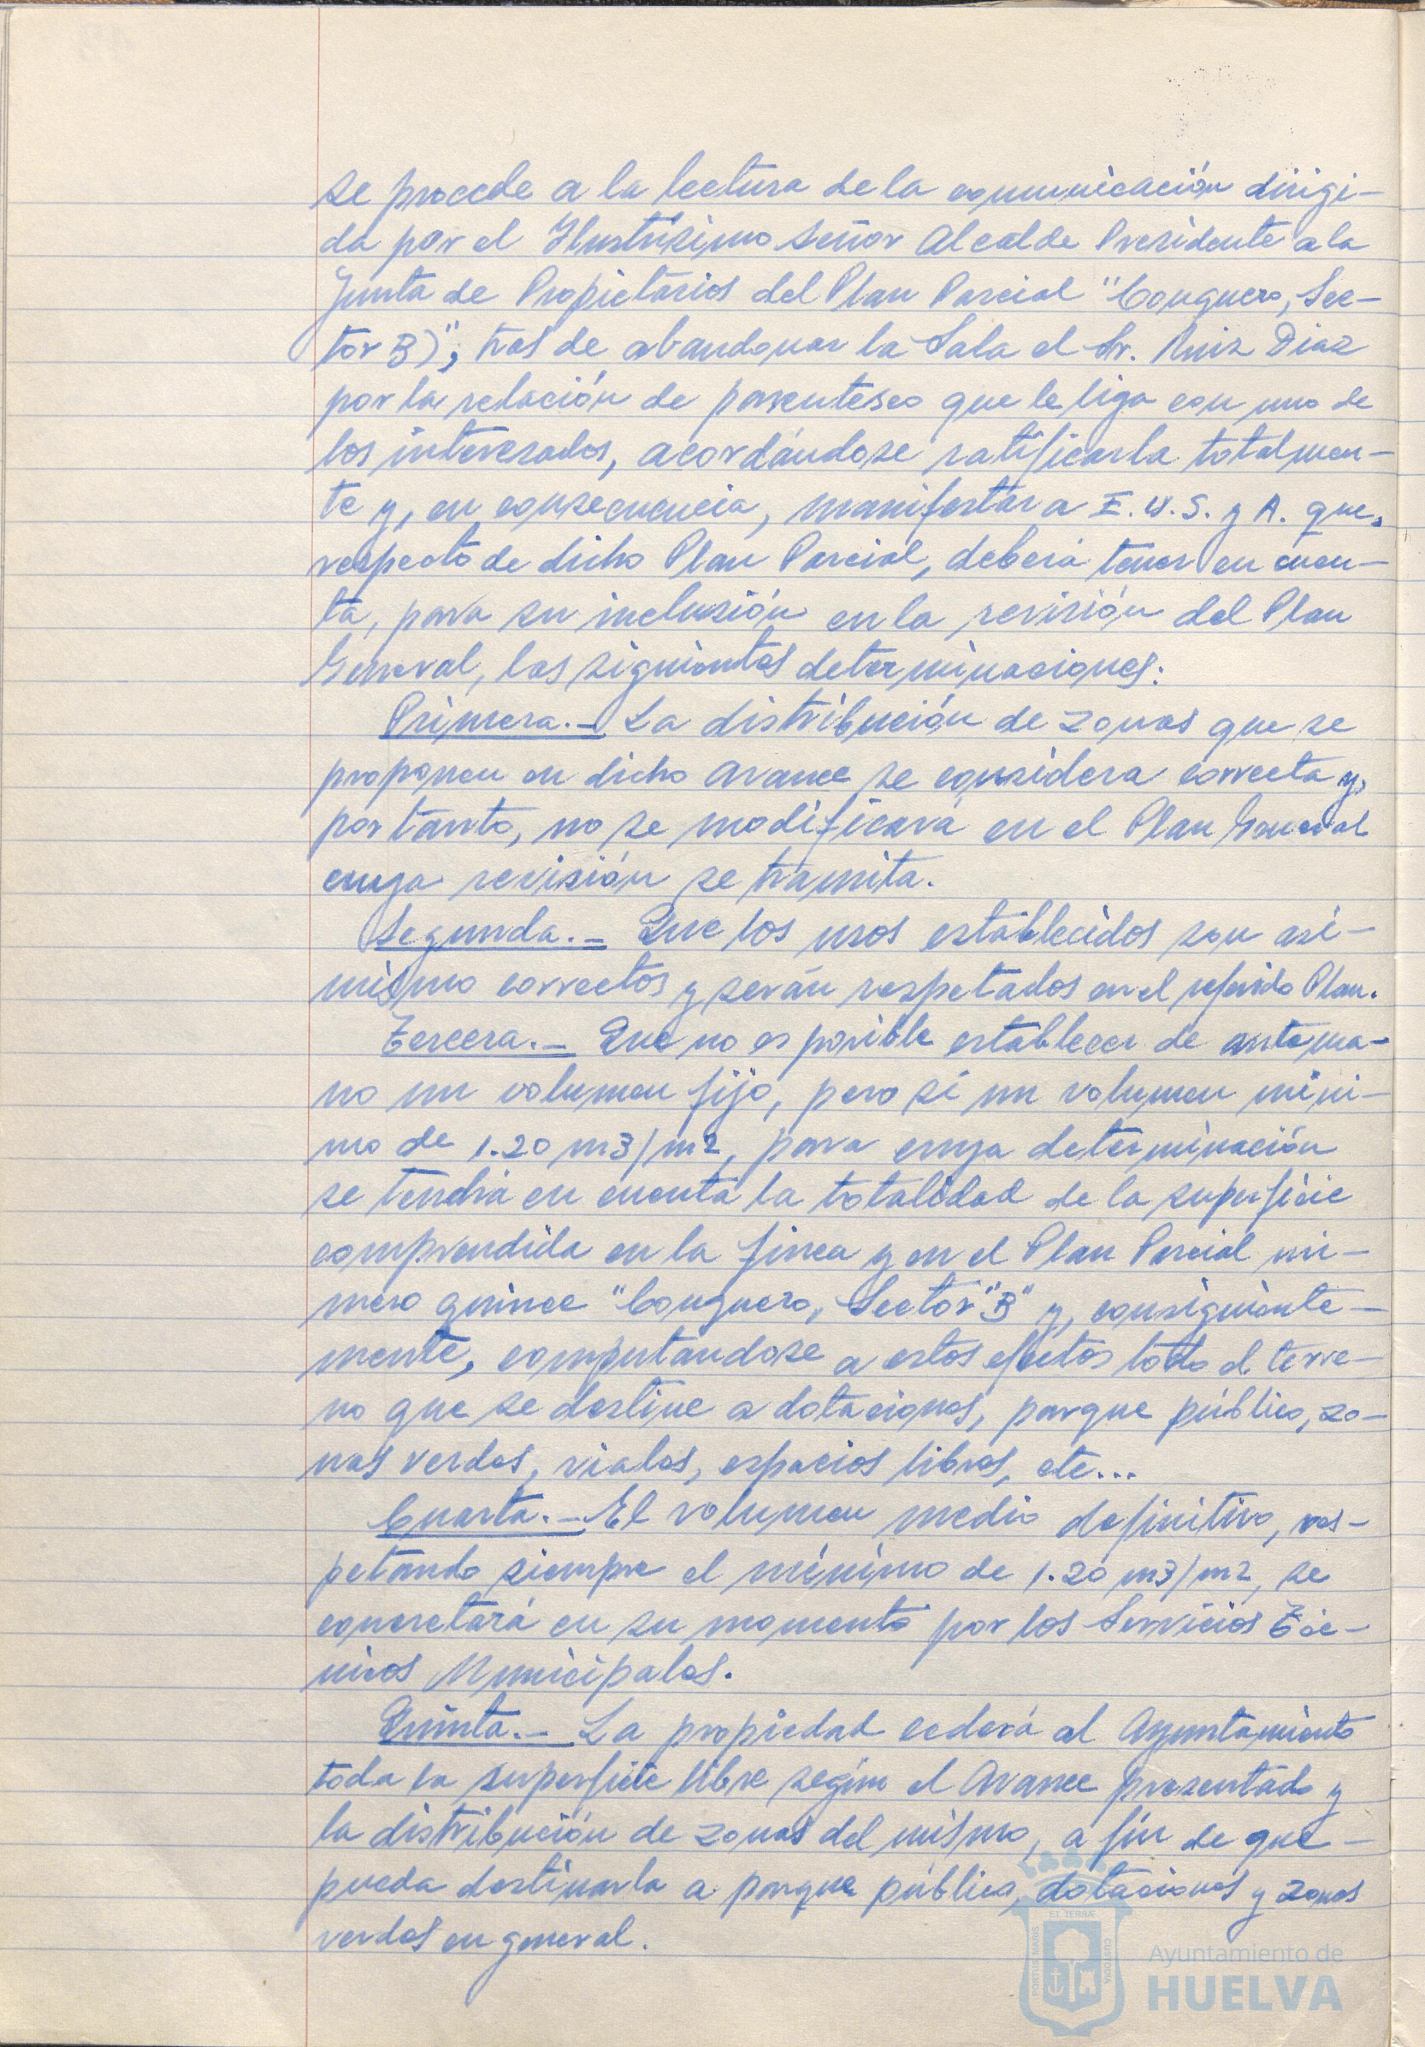 se procede a la lectura de la comunicación dirigi-
da por el Ilustrísimo Señor Alcalde Presidente a la
Junta de Propietarios del Plan Parcial "Conquero, Sec-
tor B)", tras de abandonar la Sala el Sr. Ruiz Diaz
por la relación de parentesco que le liga con uno de
los interesados, acordándose ratificarla totalmen-
te y, en consecuencia, manifestar a E.U.S. y A. que,
respecto de dicho Plan Parcial, deberá tener en cuen-
ta, para su inclusión en la revisión del Plan
General, las siguientes determinaciones:
Primera.- La distribución de zonas que se
proponen en dicho Avance se considera correcta y,
por tanto, no se modificará en el Plan General
cuya revisión se tramita.
Segunda.- Que los usos establecidos son asi-
mismo correctos y serán respetados en el referido Plan.
Tercera.- Que no es posible establecer de antema-
no un volumen fijo, pero sí un volumen míni-
mo de 1.20 m3/m2, para cuya determinación
se tendrá en cuenta la totalidad de la superficie
comprendida en la finca y en el Plan Parcial nú-
mero quince "Conquero, Sector "B" y, consiguiente-
mente, computandose a estos efectos todo el terre-
no que se destine a dotaciones, parque público, zo-
nas verdes, viales, espacios libres, etc...
Cuarta.- El volumen medio definitivo, res-
petando siempre el mínimo de 1.20 m3/m2, se
concretará en su momento por los Servicios Téc-
nicos Municipales.
Quinta.- La propiedad cederá al Ayuntamiento
toda la superficie libre según el Avance presentado y
la distribución de zonas del mismo, a fin de que
pueda destinarla a parque público, dotaciones y zonas
verdes en general.
Ayuntamiento de
HUELVA